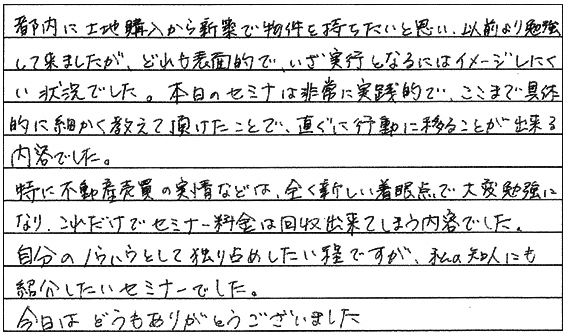 都内に土地購入から新築で物件を持ちたいと思い、以前より勉強
して来ましたが、どれも表面的で、いざ実行となるにはイメージしにく
い状況でした。本日のセミナは非常に実践的で、ここまで具体
的に細かく教えて頂けたことで、直ぐに行動に移ることが出来る
内容でした。
特に不動産売買の実情などは、全く新しい着眼点で大変勉強に
なり、これだけでセミナー料金は回収出来てしまう内容でした。
自分のノウハウとして独り占めしたい程ですが、私の知人にも
紹介したいセミナーでした。
今日はどうもありがとうございました